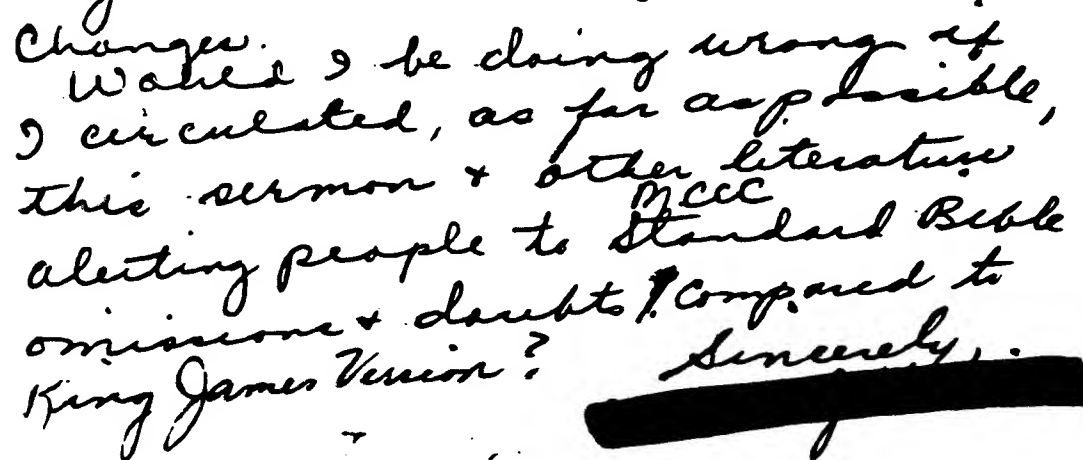 Changes.
Would I be doing wrong if
I circulated, as far as possible,
this sermon + other literature
NCCC
alerting people to Standard Bible
omissions + doubts compared to
King James Version?
Sincerely,